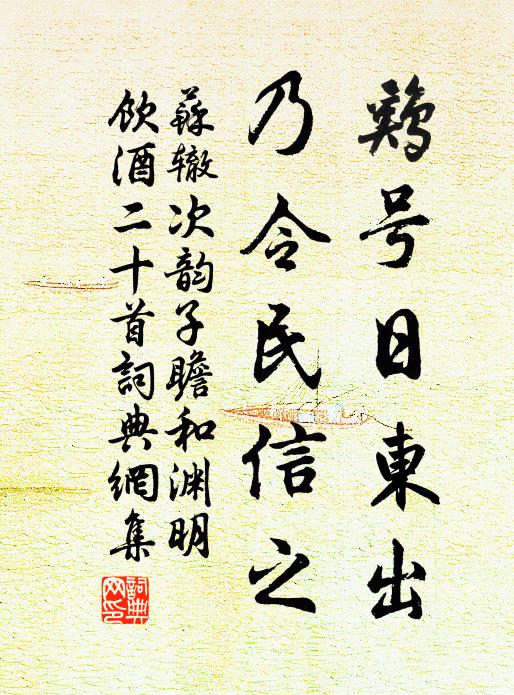 鷄号日東出
乃令民信之
蘇辙次韵子瞻和渊明
飲酒二十首詞典網集
詞典
网印